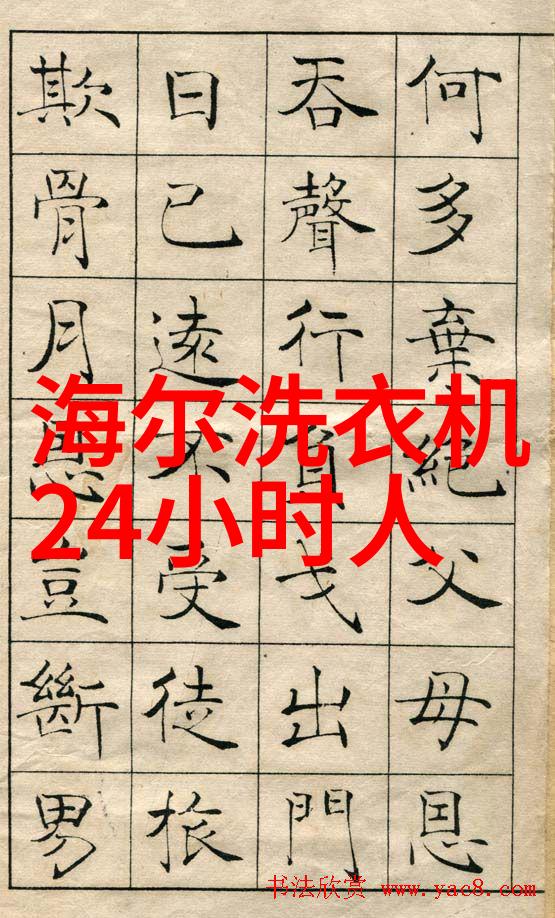 何多棄絶父母恩
吞聲行負戈出門
日已遠不受徒旅
欺骨月恩豈斷男
海尔洗衣机
24小时人
书法欣赏 www.yac8.com